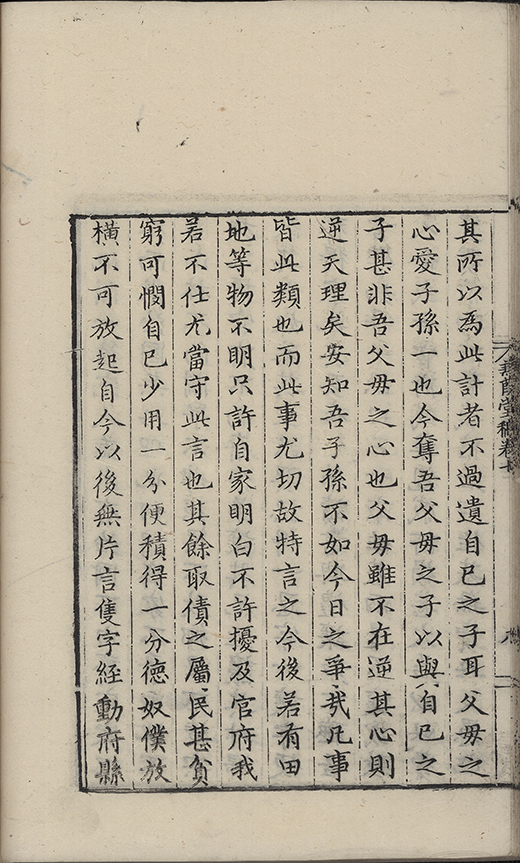 其所以為此計者不過遺自已之子耳父毋之
心愛子孫一也今奪吾父毋之子以與自已之
子甚非吾父毋之心也父毋雖不在逆其心則
逆天理矣安知吾子孫不如今日之爭㢤凡事
皆此類也而此事尤切故特言之今後若有田
地等物不明只許自家明白不許擾及官府我
若不仕尤當守此言也其餘取債之屬民甚貧
窮可憫自已少用一分便積得一分德奴僕放
橫不可放起自今以後無片言隻字經動府縣